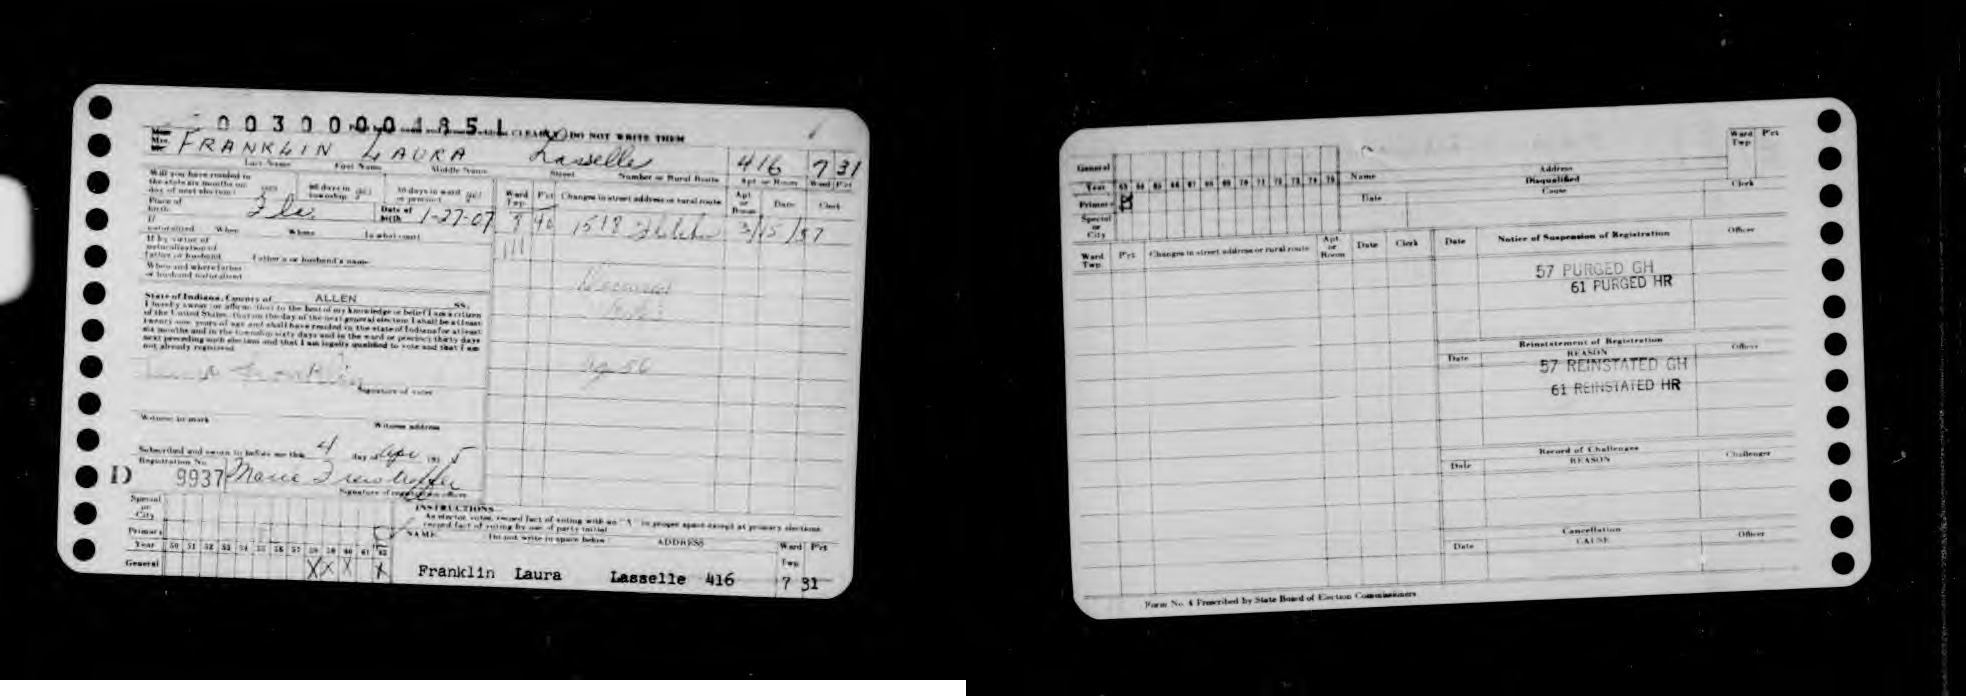 003000001851
CLEARLY DO NOT WRITE THEM
Mrs. FRANKLIN LAURA Lasselle 416 7 31
Last Name First Name Middle Name Street Number or Rural Route Apt or Room Ward Pct
Will you have resided in
the state six months on
day of next election? yes 60 days in township yes 30 days in ward or precinct yes
Ward Twp. Pct Changes in street address or rural route Apt. or Room Date Clerk
Place of birth Fla. Date of birth 1-27-07
8 46 1518 3/15/57
If naturalized When Where In what court
If by virtue of
naturalization of
father or husband Father's or husband's name
When and where father
or husband naturalized
State of Indiana, County of ALLEN SS.
I hereby swear (or affirm) that to the best of my knowledge or belief I am a citizen
of the United States, that on the day of the next general election I shall be at least
twenty-one years of age and shall have resided in the state of Indiana for at least
six months and in the township sixty days and in the ward or precinct thirty days
next preceding such election and that I am legally qualified to vote and that I am
not already registered.
Franklin
Signature of voter
Witness to mark Witness address
Subscribed and sworn to before me this 4 day of
Registration No.
D 9937 Marie
Signature of registration officer
INSTRUCTIONS
As elector votes, record fact of voting with an "X" in proper space except at primary elections
record fact of voting by use of party initial
Special or City
Primary
Year 50 51 52 53 54 55 56 57 58 59 60 61 62
General X X X X
NAME Do not write in space below ADDRESS Ward Twp Pct
Franklin Laura Lasselle 416 7 31
General
Year 63 64 65 66 67 68 69 70 71 72 73 74 75
Primary
Special or City
Name Address Ward Twp Pct
Disqualified
Date Cause Clerk
Ward Twp. Pct Changes in street address or rural route Apt. or Room Date Clerk
Date Notice of Suspension of Registration Officer
57 PURGED GH
61 PURGED HR
Reinstatement of Registration
Date REASON Officer
57 REINSTATED GH
61 REINSTATED HR
Record of Challenges
Date REASON Challenger
Cancellation
Date CAUSE Officer
Form No. 4 Prescribed by State Board of Election Commissioners